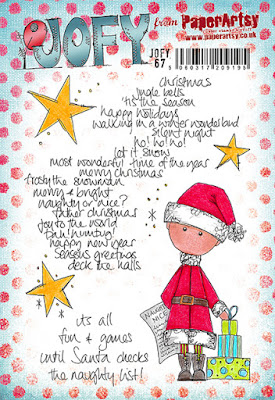 JOFY
from PaperArtsy
www.paperartsy.co.uk
JOFY
67
5 060317 209195
christmas
jingle bells
'tis the season
happy holidays
walking in a winter wonderland
silent night
ho! ho! ho!
let it snow
most wonderful time of the year
merry christmas
frosty the snowman
merry & bright
naughty or nice?
father christmas
joy to the world
bah! humbug!
happy new year
seasons greetings
deck the halls
it's all
fun & games
until Santa checks
the naughty list!